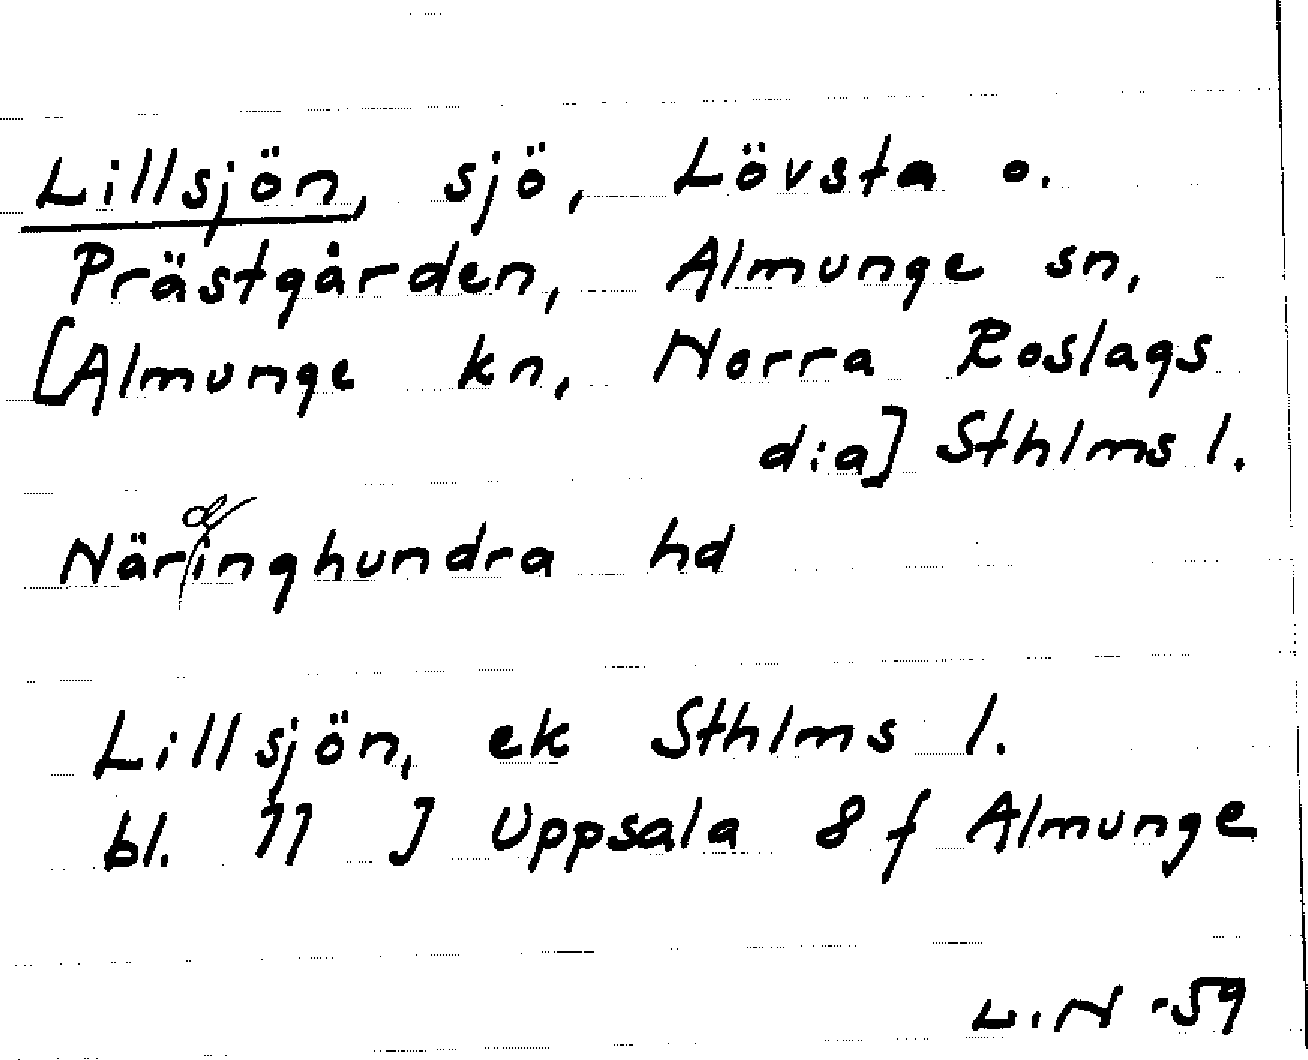 Lillsjön, sjö, Lövsta o.
Prästgården, Almunge sn,
[Almunge kn, Norra Roslags
d:a] Sthlms l.
Näringhundra hd
Lillsjön, ek Sthlms l.
bl. 11 J Uppsala 8 f Almunge
L.N -59